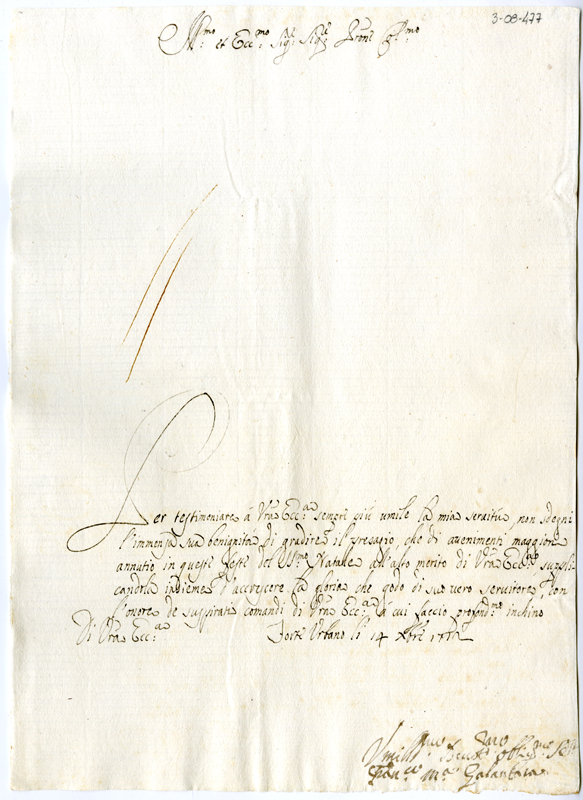 3-08-477
Ill.mo et Ecc.mo Sig.r Sig.r Prone Col.mo
Per testimoniare à Vra Ecc.za sempre più umile la mia servitù, non sdegni
l'immensa sua benignità di gradire il presagio, che di avenimenti maggiori
annutio in queste feste del SS.mo Natale all'alto merito di Vra Ecc.za suppli-
candola insieme d'accrescere la gloria che godo di suo vero servitore, con
l'onore de suspirati comandi di Vra Ecc.za à cui faccio profond.mo inchino
Di Vra Ecc.za Forte Urbano li 14 Xbre
Umiliss.mo Devot.mo Oblig.mo
Fran.co M.a